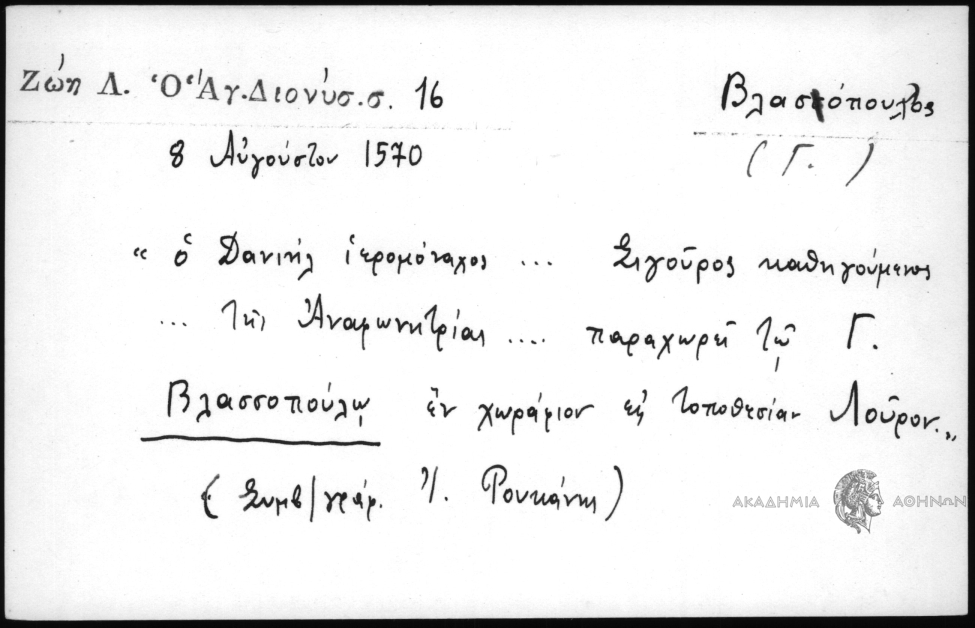 Ζώη Λ. Ὁ Ἅγ. Διονύσ. σ. 16
Βλασσόπουλος
(Γ.)
8 Αὐγούστου 1570
"ὁ Δανιήλ ἱερομόναχος ... Σιγοῦρος καθηγούμενος
... τῆς Ἀναφωνητρίας .... παραχωρεῖ τῷ Γ.
Βλασσοπούλῳ ἕν χωράφιον εἰς τοποθεσίαν Λοῦρον."
(Συμβ/γράφ. Ἰ. Ρουκάνη)
ΑΚΑΔΗΜΙΑ ΑΘΗΝΩΝ